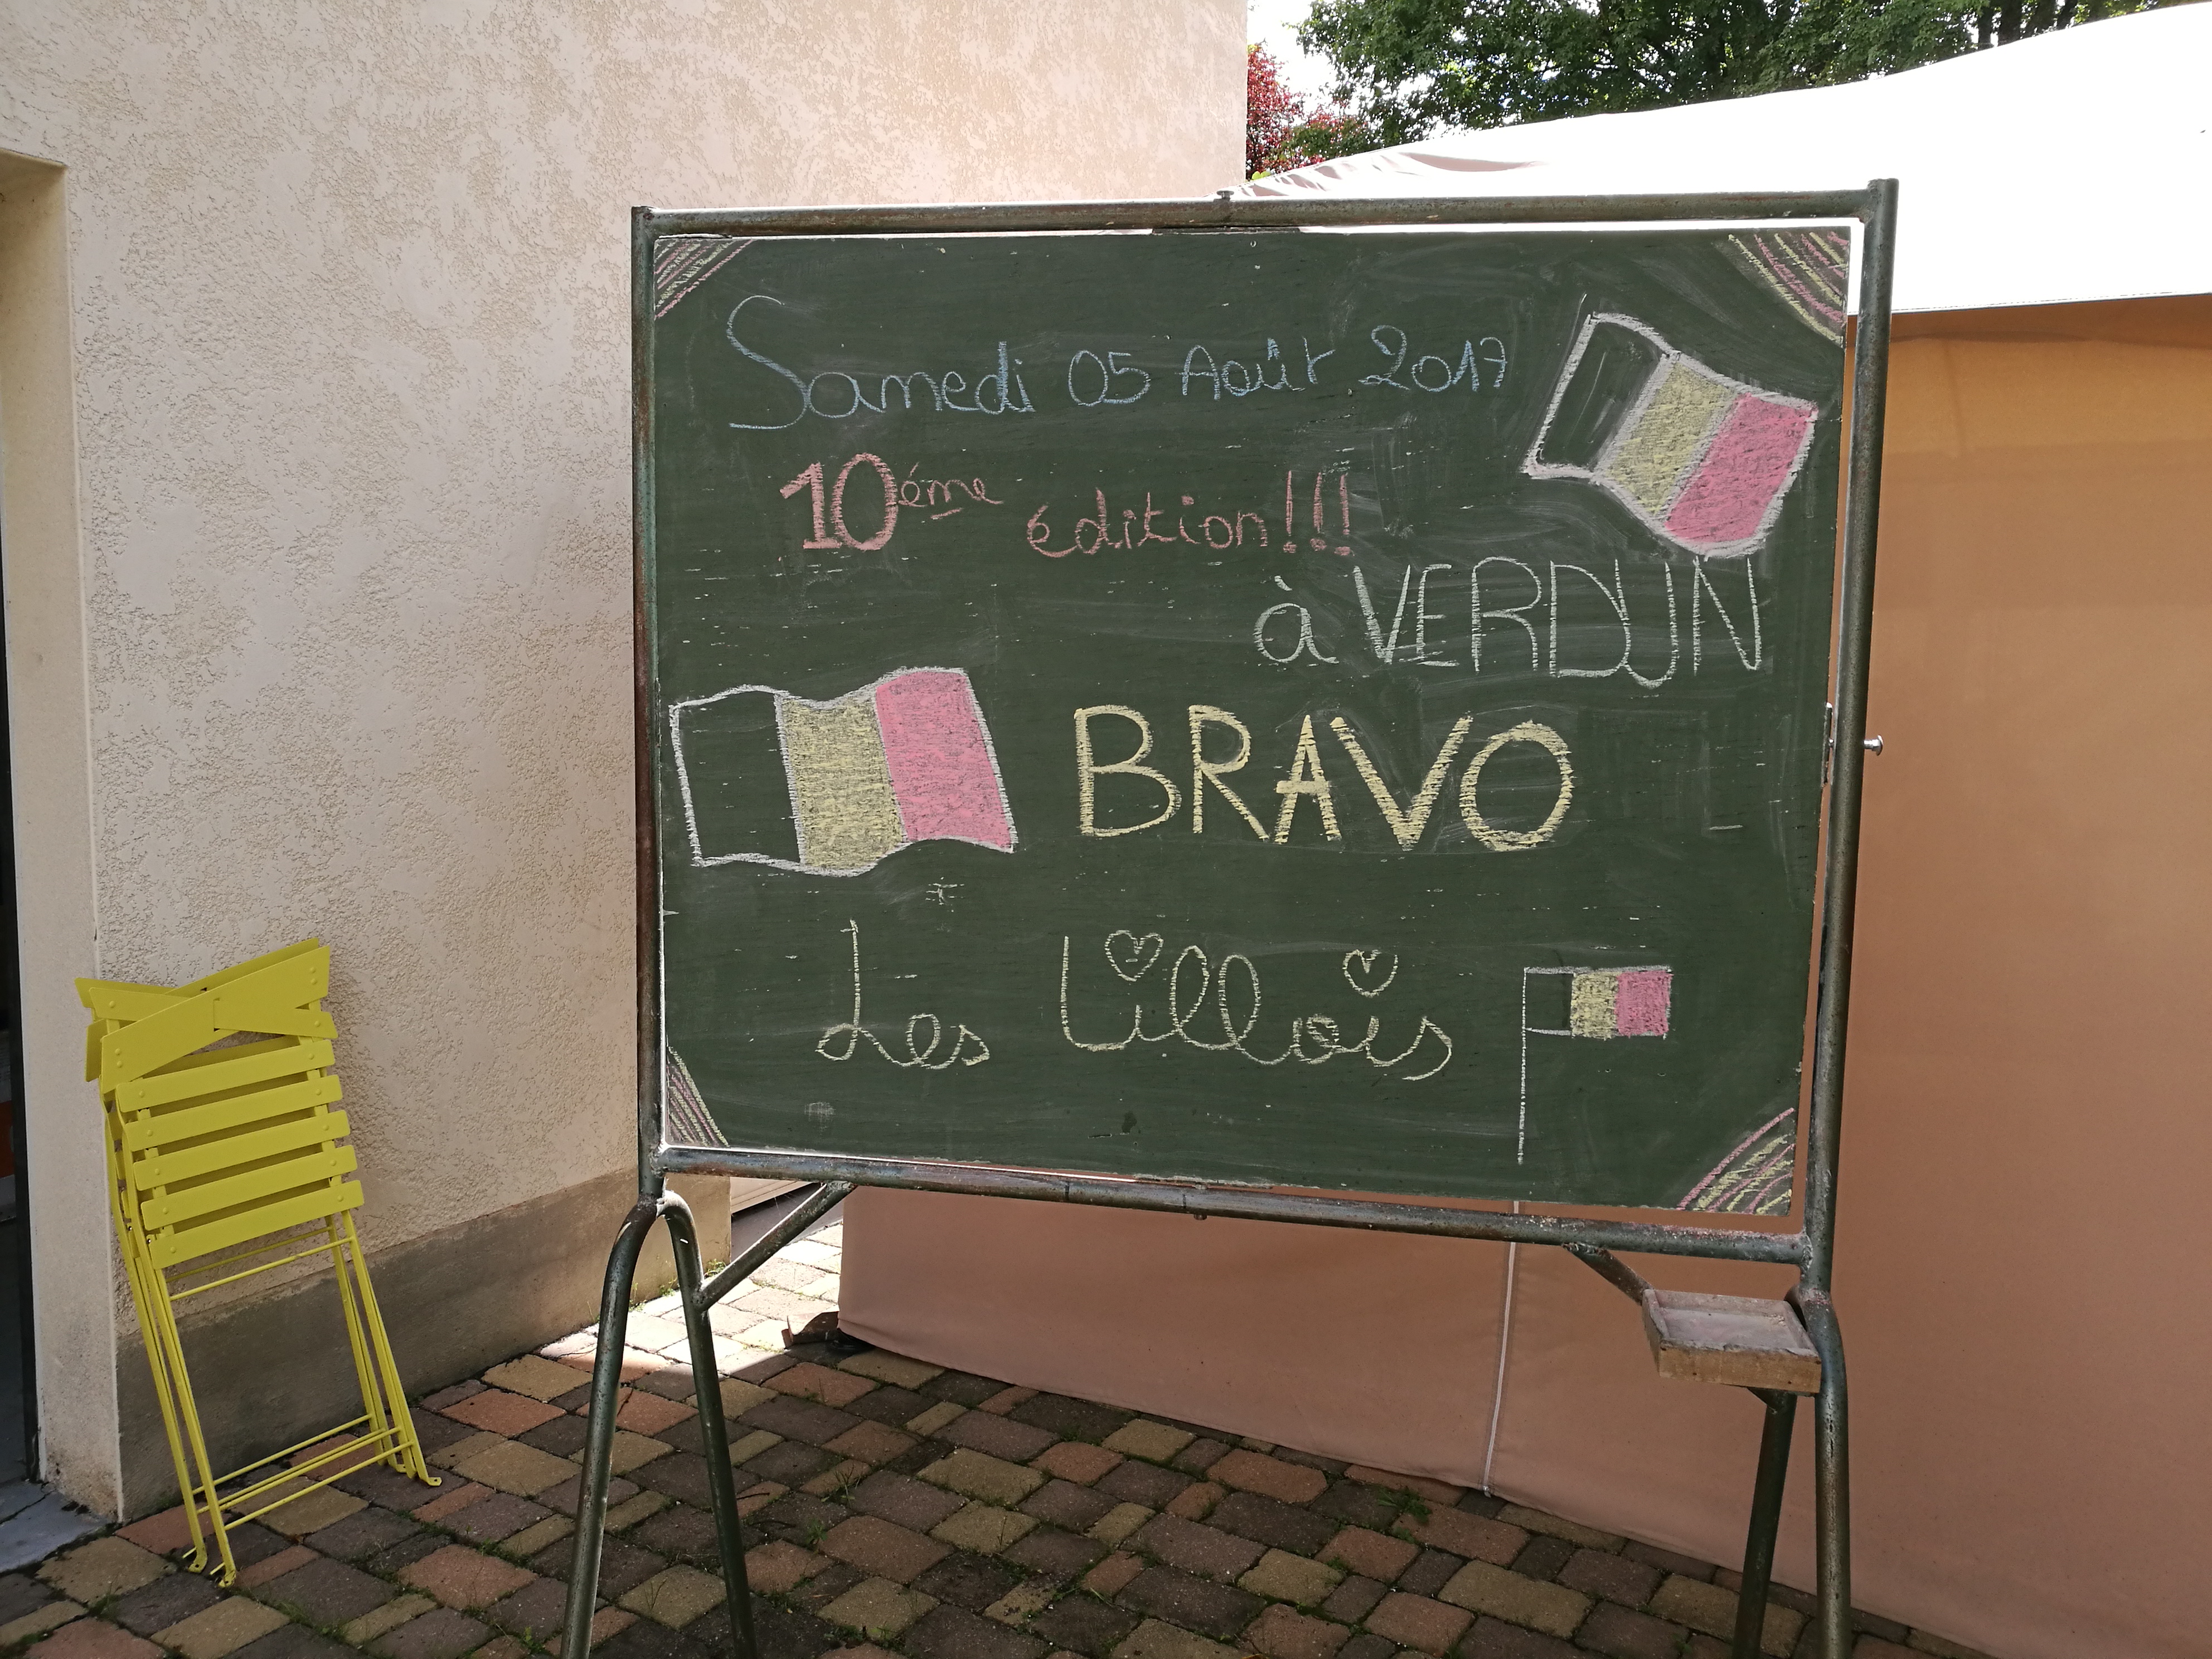 Samedi 05 Août 2017
10éme édition!!!
à VERDUN
BRAVO
Les Lillois